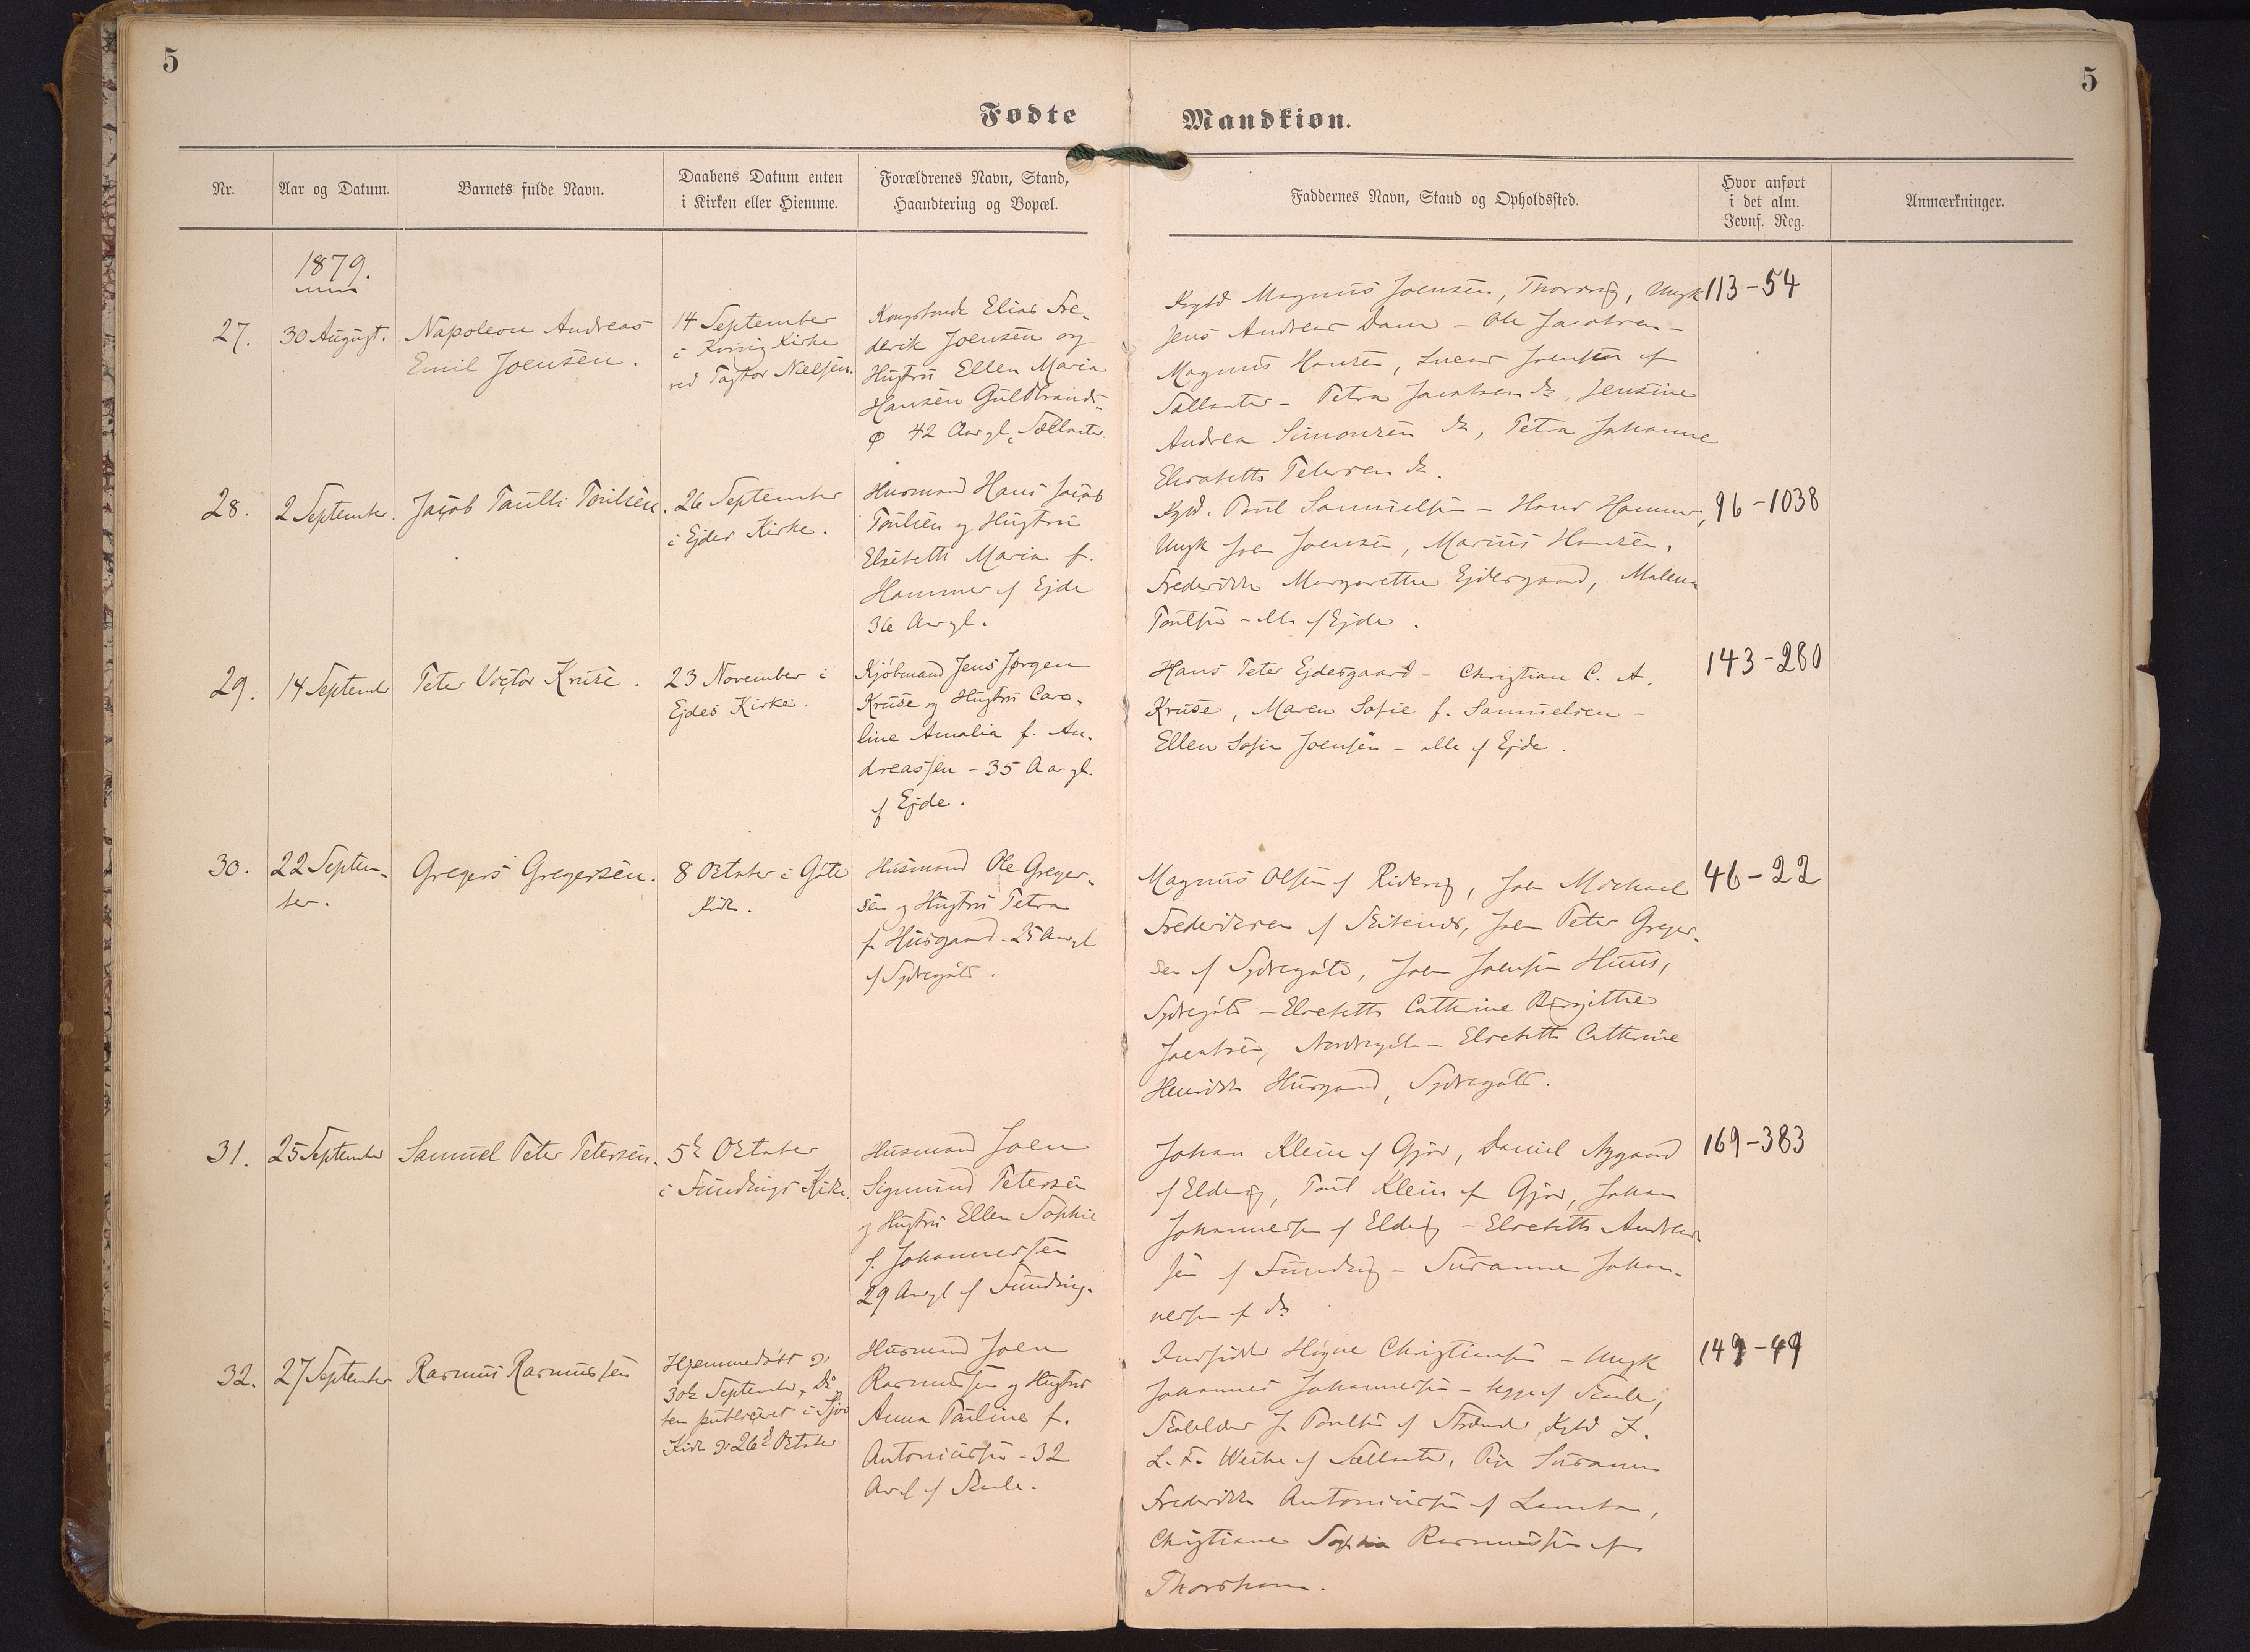 5
5
Fødte
Mandkiøn.
Nr.
Aar og Datum.
Barnets fulde Navn.
Daabens Datum enten
i Kirken eller Hiemme.
Forældrenes Navn, Stand,
Haandtering og Bopæl.
Faddernes Navn, Stand og Opholdssted.
Hvor anført
i det alm.
Jevnf. Reg.
Anmærkninger.
1879.
27.
30 August.
Napoleon Andreas
Emil Joensen.
14 September
i Kirke
ved Pastor Nielsen.
Kongsbonde Elias Fre-
derik Joensen og
Hustru Ellen Maria
Hansen Guldbrands-
ø 42 Aar gl.
Magnus Joensen, Thorsvig, Ungk
Jens Andreas Dam - Ole Jacobsen -
Magnus Hansen, Lucas Joensen af
Petra Jacobsen do, Jensine
Andrea Simonsen do, Petra Johanne
Elisabeth Petersen do.
113-54
28.
2 September
Jacob Paulli Poulsen.
26 September
i Ejdes Kirke.
Husmand Hans Jacob
Poulsen og Hustru
Elsebeth Maria f.
Hammer af Ejde
36 Aar gl.
Poul Samuelsen - Hans Hammer,
Ungk Joen Joensen, Marius Hansen,
Frederikke Margarethe Ejdesgaard, Malene
Poulsen - alle af Ejde.
96-1038
29.
14 September
Peter Victor Kruse.
23 November i
Ejdes Kirke.
Kjøbmand Jens Jørgen
Kruse og Hustru Caro-
line Amalia f. An-
dreassen - 35 Aar gl.
af Ejde.
Hans Peter Ejdesgaard - Christian C. A.
Kruse, Maren Sofie f. Samuelsen -
Ellen Sofie Joensen - alle af Ejde.
143-280
30.
22 Septem-
ber.
Gregers Gregersen.
8 Oktober i Gøte
Kirke.
Husmand Ole Greger-
sen og Hustru Petra
f. Husgaard - 25 Aar gl
af Sydregøte.
Magnus Olsen af Ridevig, Joen Michael
Frederiksen af Joen Peter Greger-
sen af Sydregøte, Joen Joensen Huus,
Sydregøte - Elsebeth Cathrine Birgitthe
Jacobsen, Nordregøte - Elsebeth Cathrine
Henrikke Husgaard, Sydregøte.
46-22
31.
25 September
Samuel Peter Petersen.
5te Oktober
i Fundings Kirke.
Husmand Joen
Sigmund Petersen
og Hustru Ellen Sophie
f. Johannessen
29 Aar gl af Funding.
Johan Klein af Gjov, Daniel Nygaard
af Eldevig, Poul Klein af Gjov, Johan
Johannessen af Eldevig - Elsebeth Andreas
sen af Funding - Susanne Johan-
nessen af do
169-383
32.
27 September
Rasmus Rasmussen
Hjemmedøbt d.
30te September, Daa-
ben publiceret i Sjov
Kirke d. 26de Oktober
Husmand Joen
Rasmussen og Hustru
Anna Pauline f.
Antoniussen - 32
Aar gl af Skaale.
Indsidder Høgne Christiansen - Ungk
Johannes Johannessen - begge af Skaale,
J. Poulsen af Strænde
L. F. Weihe af Pige Susanne
Frederikke Antoniussen af Lamba,
Christiane Sophia Rasmussen af
Thorshavn.
149-49